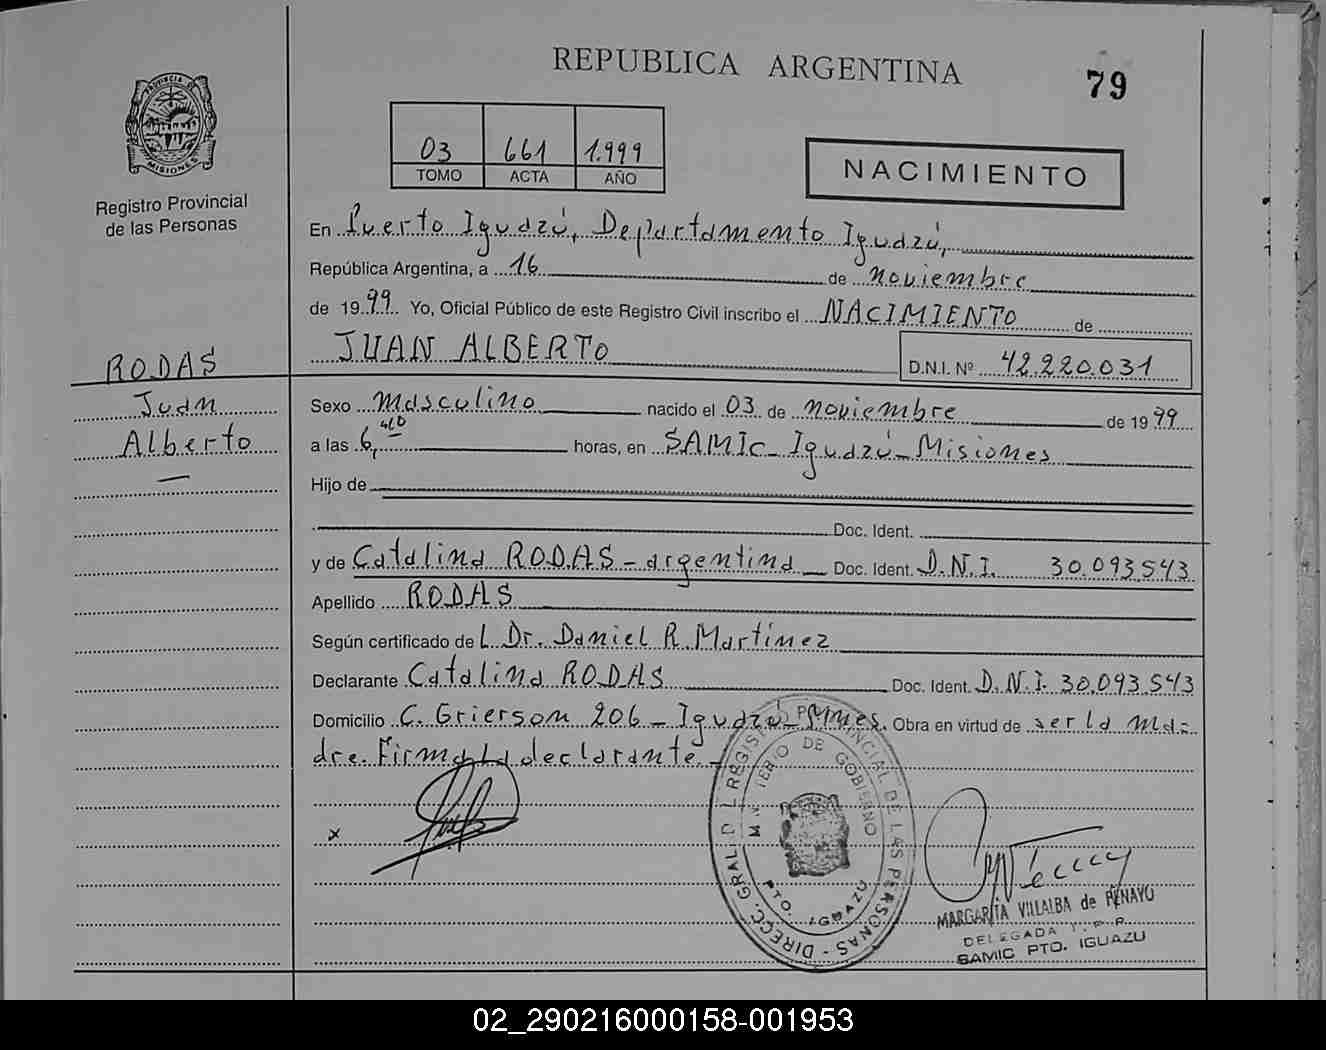 REPUBLICA ARGENTINA
79
PROVINCIA DE
MISIONES
Registro Provincial
de las Personas
03 661 1.999
TOMO ACTA AÑO
NACIMIENTO
En Puerto Iguazú, Departamento Iguazú,
República Argentina, a 16 de noviembre
de 1999 Yo, Oficial Público de este Registro Civil inscribo el NACIMIENTO de
JUAN ALBERTO
D.N.I. Nº 42.220.031
RODAS
Juan
Alberto
—
Sexo masculino nacido el 03 de noviembre de 1999
a las 6, horas, en SAMIC_ Iguazú_ Misiones
Hijo de
Doc. Ident.
y de Catalina RODAS - argentina Doc. Ident. D.N.I. 30.093.543
Apellido RODAS
Según certificado de L Dr. Daniel R. Martinez
Declarante Catalina RODAS Doc. Ident. D.N.I. 30.093.543
Domicilio C. Grierson 206 - Iguazú - Mnes. Obra en virtud de ser la ma-
dre. Firma la declarante. -
x
DIRECC. GRAL. DEL REGISTRO PROVINCIAL DE LAS PERSONAS -
MINISTERIO DE GOBIERNO
PTO. IGUAZU
MARGARITA VILLALBA de PENAYO
DELEGADA
SAMIC PTO. IGUAZU
02_290216000158-001953